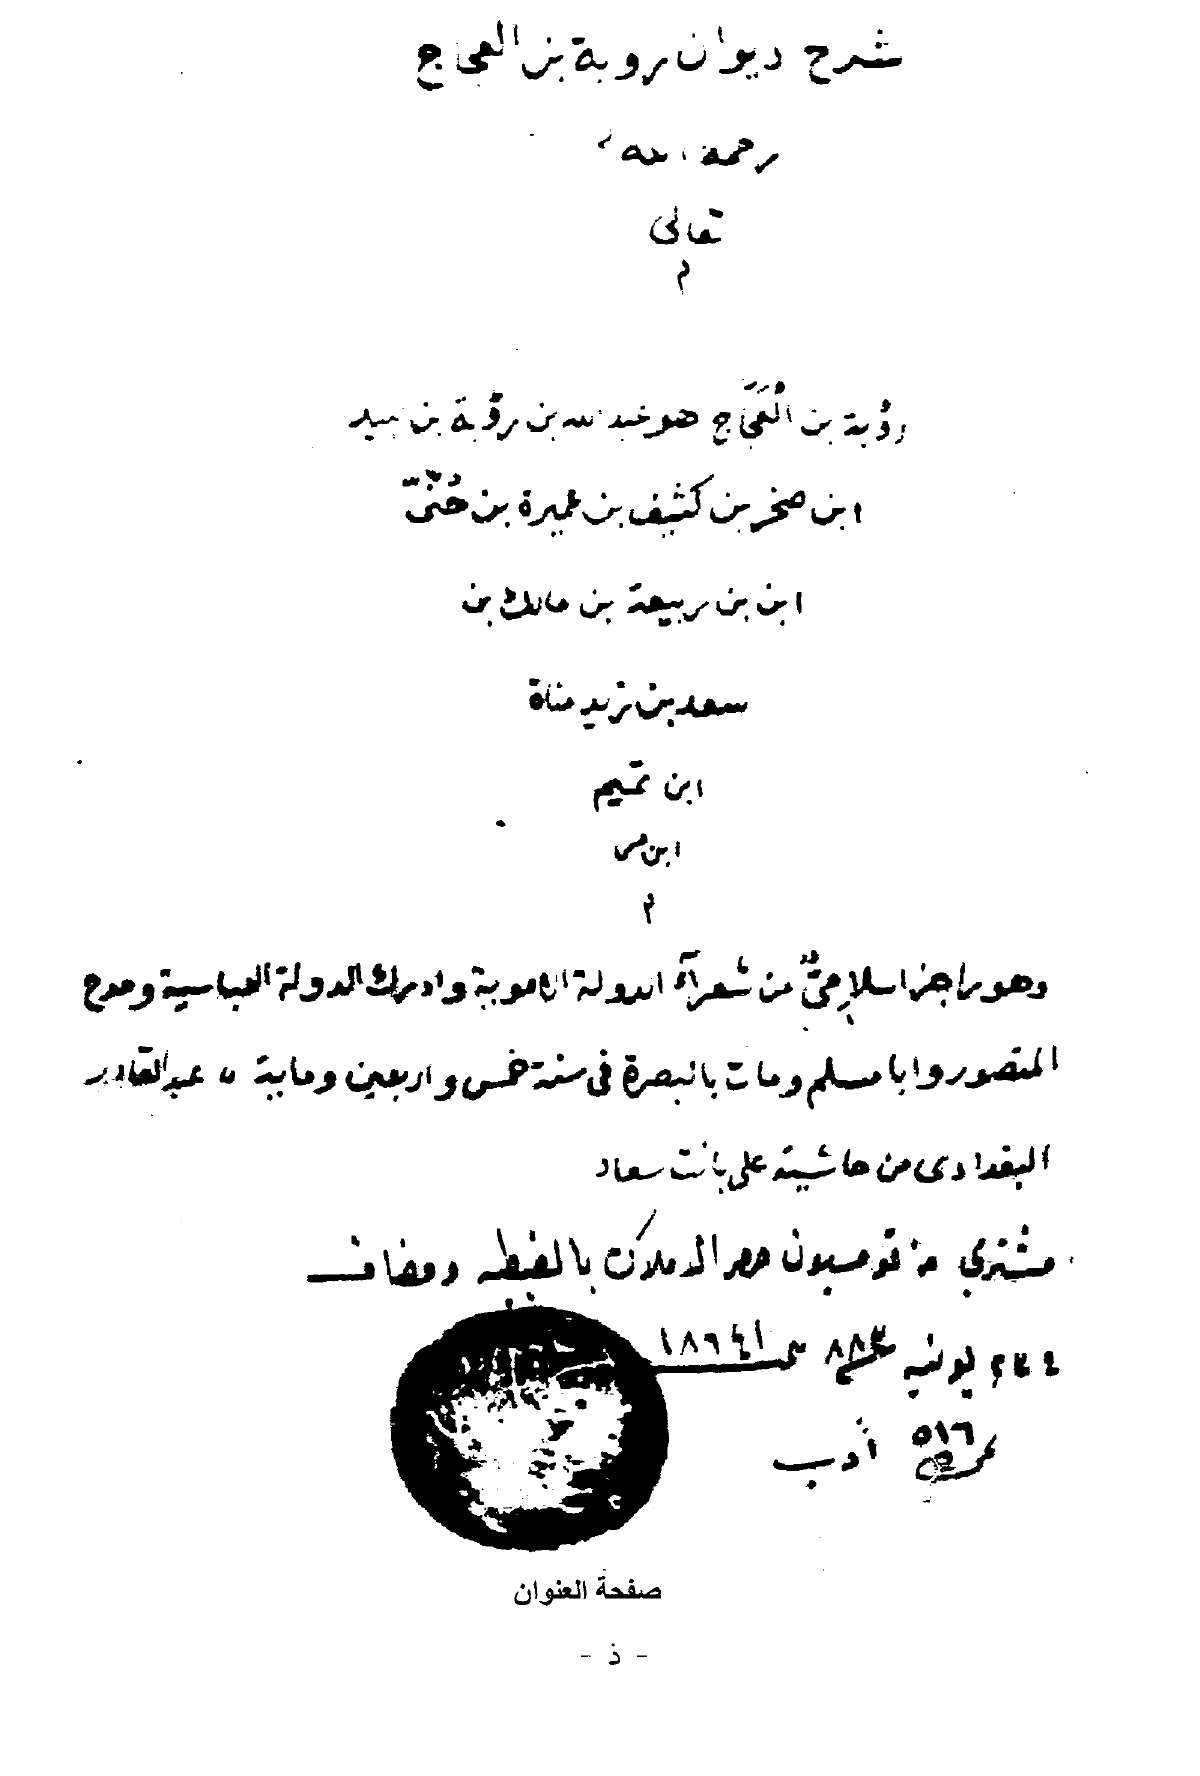 شرح ديوان روبة بن العجاج
رحمة الله
تعالى
م
رؤبة بن الُعَجَّاج هو عبد الله بن رؤبة بن لبيد
ابن صخر بن كثيف بن عميرة بن حُنَىّ
ابن بن ربيعة بن مالك بن
سعد بن زيد مناة
ابن تميم
ابن مر
م
وهو راجز اسلامِىٌّ من شعرآء الدولة الاموية وادرك الدولة العباسية ومدح
المنصور وابا مسلم ومات بالبصرة فى سنة خمس واربعين وماية عبد القادر
البغدادى من حاشيته على بانت سعاد
مشترى من قومسيون حصر الاملاك بالغيطه ومضاف
يونيه ٨٨٣ ١٨٦٤١
٥١٦ أدب
صفحة العنوان
- ذ -